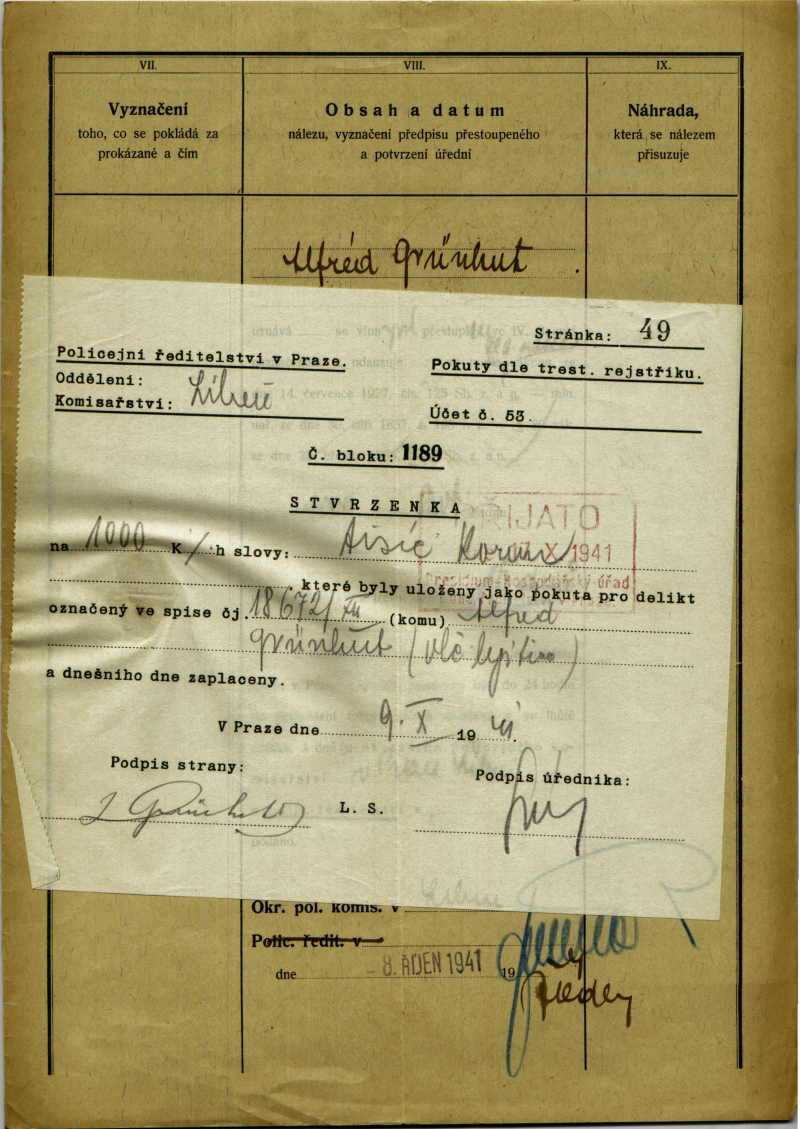 VII.
VIII.
IX.
Vyznačení
toho, co se pokládá za
prokázané a čím
Obsah a datum
nálezu, vyznačení předpisu přestoupeného
a potvrzení úřední
Náhrada,
která se nálezem
přisuzuje
Alfréd Grünhut
Stránka: 49
Policejní ředitelství v Praze.
Oddělení:
Komisařství: Libeň
Pokuty dle trest. rejstříku.
Účet č. 53.
Č. bloku: 1189
STVRZENKA
PŘIJATO
X 1941
na 1000 K h slovy: tisíc Korun
které byly uloženy jako pokuta pro delikt
označený ve spise čj. 18672/XII (komu) Alfred
Grünhut
a dnešního dne zaplaceny.
V Praze dne 9. X 1941.
Podpis strany:
Podpis úředníka:
L. S.
Okr. pol. komis. v
Polic. ředit. v
dne 8. ŘÍJEN 1941 19